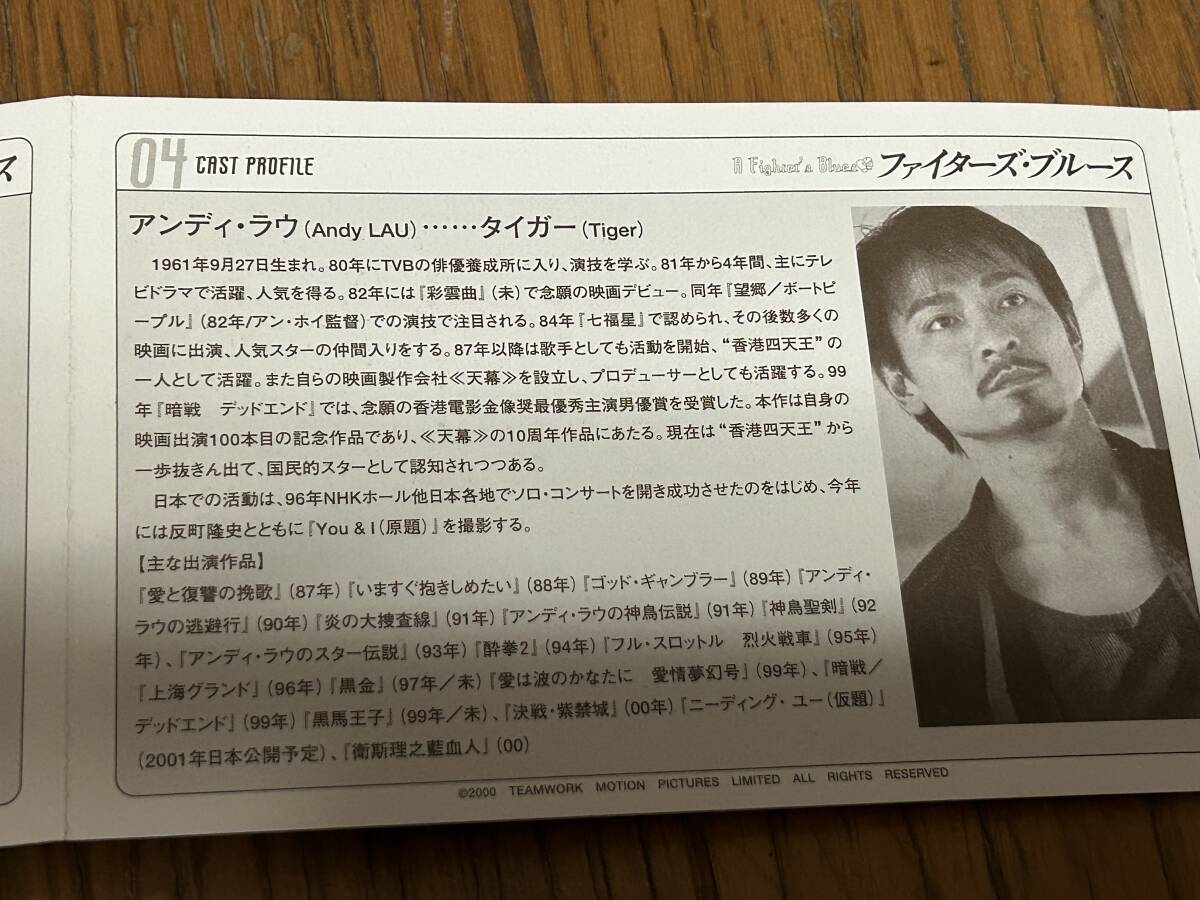 ス
04 CAST PROFILE
A Fighter's Blues ファイターズ・ブルース
アンディ・ラウ(Andy LAU)……タイガー(Tiger)
1961年9月27日生まれ。80年にTVBの俳優養成所に入り、演技を学ぶ。81年から4年間、主にテレ
ビドラマで活躍、人気を得る。82年には『彩雲曲』(未)で念願の映画デビュー。同年『望郷／ボートピ
ープル』(82年/アン・ホイ監督)での演技で注目される。84年『七福星』で認められ、その後数多くの
映画に出演、人気スターの仲間入りをする。87年以降は歌手としても活動を開始、“香港四天王”の
一人として活躍。また自らの映画製作会社≪天幕≫を設立し、プロデューサーとしても活躍する。99
年『暗戦　デッドエンド』では、念願の香港電影金像奨最優秀主演男優賞を受賞した。本作は自身の
映画出演100本目の記念作品であり、≪天幕≫の10周年作品にあたる。現在は“香港四天王”から
一歩抜きん出て、国民的スターとして認知されつつある。
日本での活動は、96年NHKホール他日本各地でソロ・コンサートを開き成功させたのをはじめ、今年
には反町隆史とともに『You & I(原題)』を撮影する。
【主な出演作品】
『愛と復讐の挽歌』(87年)『いますぐ抱きしめたい』(88年)『ゴッド・ギャンブラー』(89年)『アンディ・
ラウの逃避行』(90年)『炎の大捜査線』(91年)『アンディ・ラウの神鳥伝説』(91年)『神鳥聖剣』(92
年)、『アンディ・ラウのスター伝説』(93年)『酔拳2』(94年)『フル・スロットル　烈火戦車』(95年)
『上海グランド』(96年)『黒金』(97年／未)『愛は波のかなたに　愛情夢幻号』(99年)、『暗戦／
デッドエンド』(99年)『黒馬王子』(99年／未)、『決戦・紫禁城』(00年)『ニーディング・ユー(仮題)』
(2001年日本公開予定)、『衛斯理之藍血人』(00)
©2000 TEAMWORK MOTION PICTURES LIMITED ALL RIGHTS RESERVED